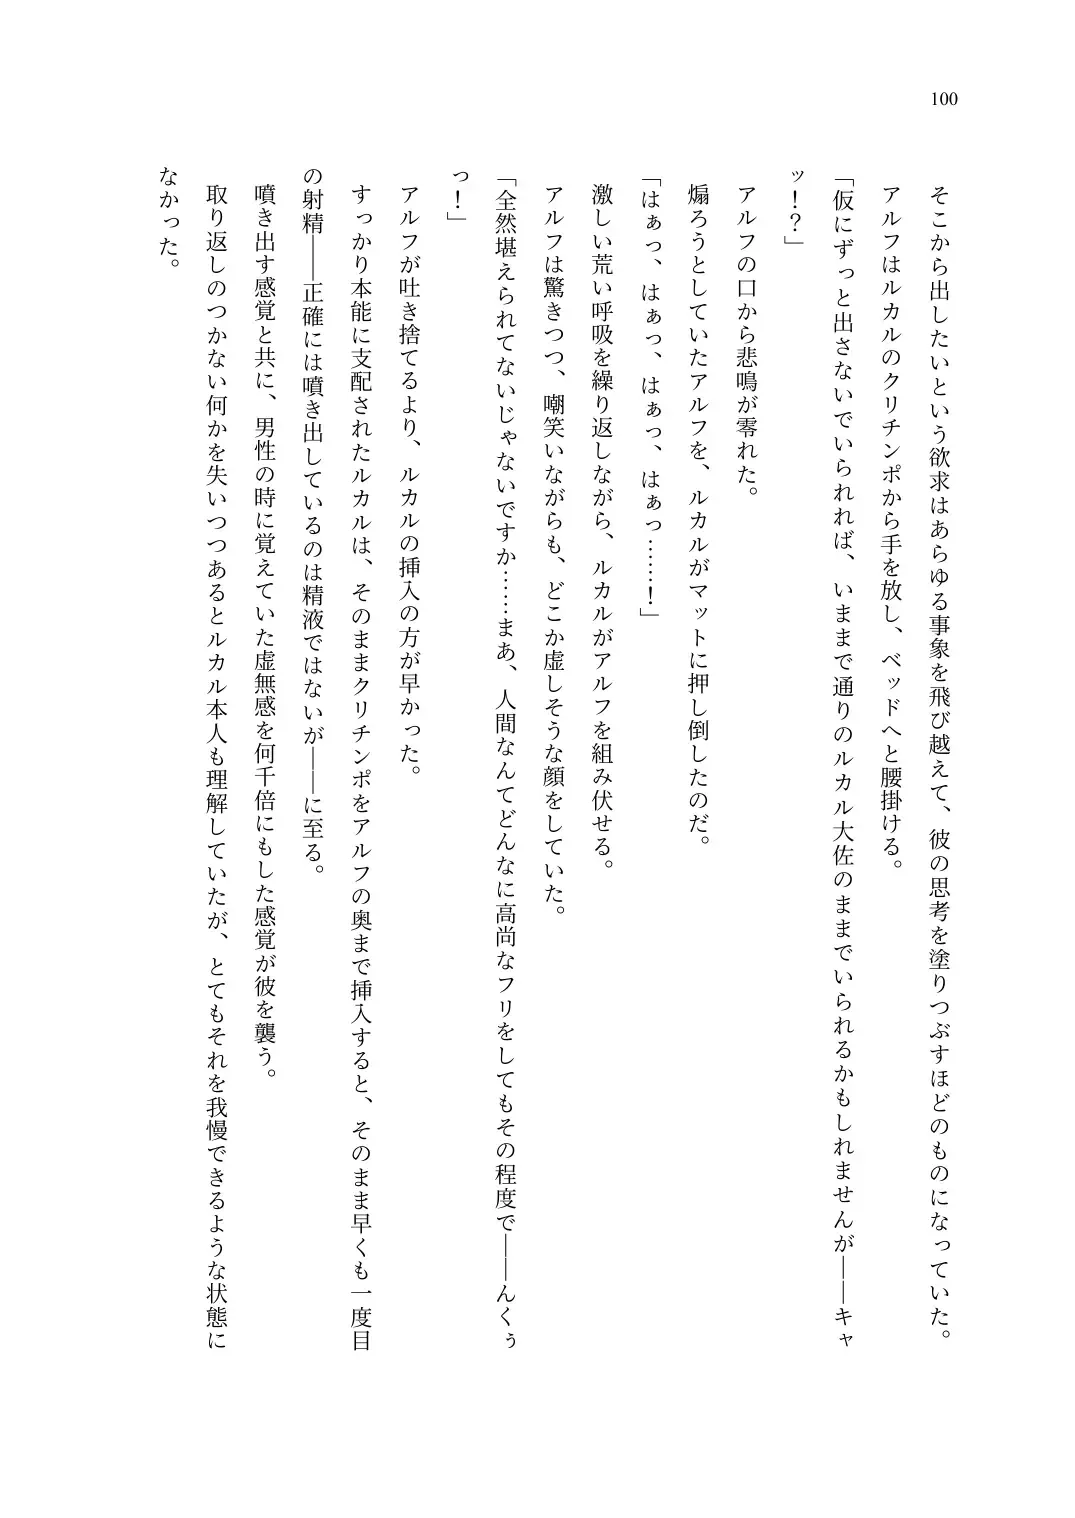 100
そこから出したいという欲求はあらゆる事象を飛び越えて、彼の思考を塗りつぶすほどのものになっていた。
アルフはルカルのクリチンポから手を放し、ベッドへと腰掛ける。
「仮にずっと出さないでいられれば、いままで通りのルカル大佐のままでいられるかもしれませんが――キャ
ッ！？」
アルフの口から悲鳴が零れた。
煽ろうとしていたアルフを、ルカルがマットに押し倒したのだ。
「はぁっ、はぁっ、はぁっ、はぁっ……！」
激しい荒い呼吸を繰り返しながら、ルカルがアルフを組み伏せる。
アルフは驚きつつ、嘲笑いながらも、どこか虚しそうな顔をしていた。
「全然堪えられてないじゃないですか……まあ、人間なんてどんなに高尚なフリをしてもその程度で――んくぅ
っ！」
アルフが吐き捨てるより、ルカルの挿入の方が早かった。
すっかり本能に支配されたルカルは、そのままクリチンポをアルフの奥まで挿入すると、そのまま早くも一度目
の射精――正確には噴き出しているのは精液ではないが――に至る。
噴き出す感覚と共に、男性の時に覚えていた虚無感を何千倍にもした感覚が彼を襲う。
取り返しのつかない何かを失いつつあるとルカル本人も理解していたが、とてもそれを我慢できるような状態に
なかった。